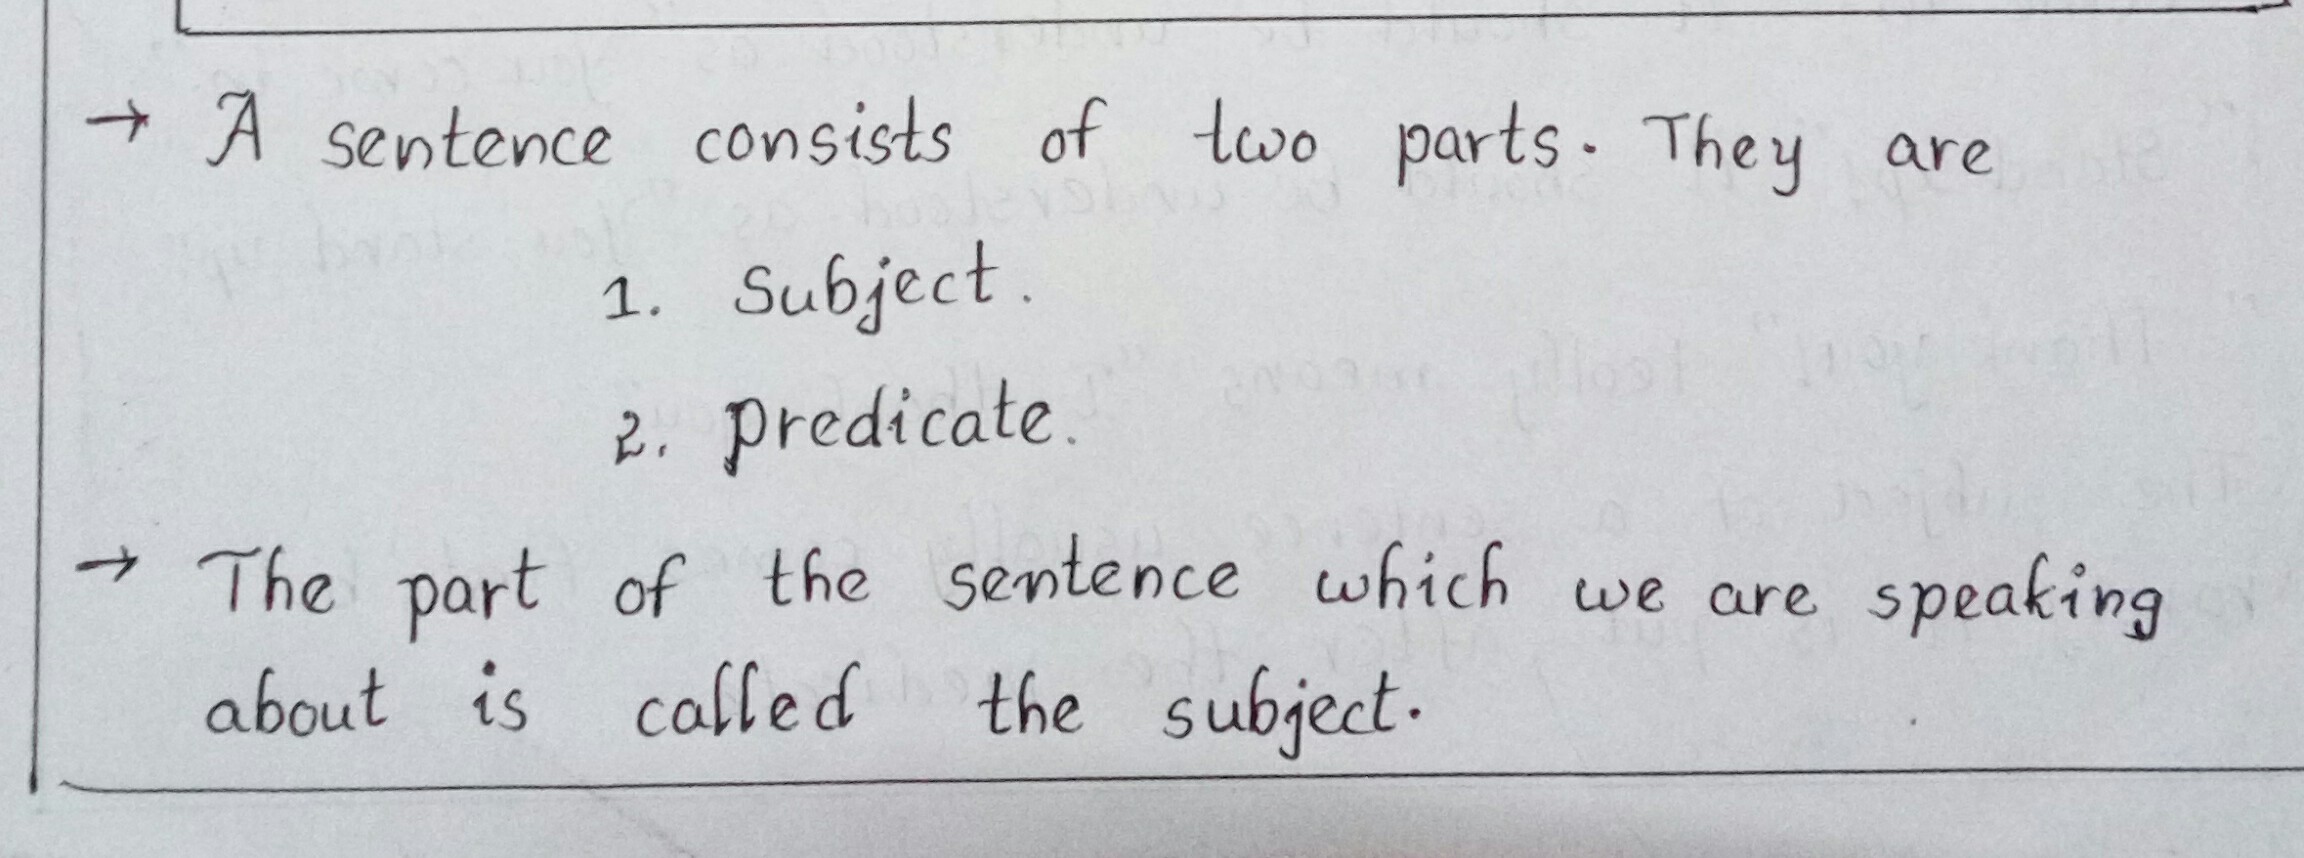 → A sentence consists of two parts. They are
1. Subject.
2. predicate.
→ The part of the sentence which we are speaking
about is called the subject.